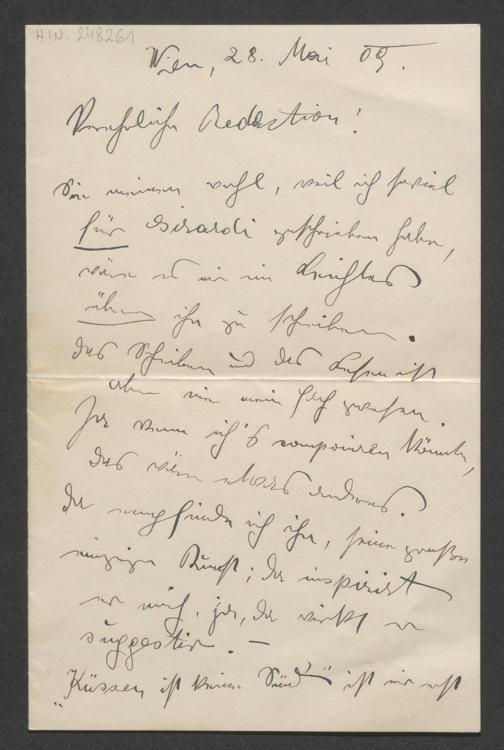 H.I.N. 248261
Wien, 28. Mai 09.
Verehrliche Redaction!
Sie meinen wohl, weil ich soviel
für Girardi geschrieben habe,
wäre es mir ein Leichtes
über ihn zu schreiben.
Das Schreiben und das Lesen ist
aber nie mein Fach gewesen.
Ja wenn ich's componiren könnte,
das wäre etwas anderes.
Da empfinde ich ihn, seine große
einzige Kunst; da inspirirt
er mich, ja, da wirkt er
suggestiv. —
„Küssen ist keine Sünd" ist mir erst